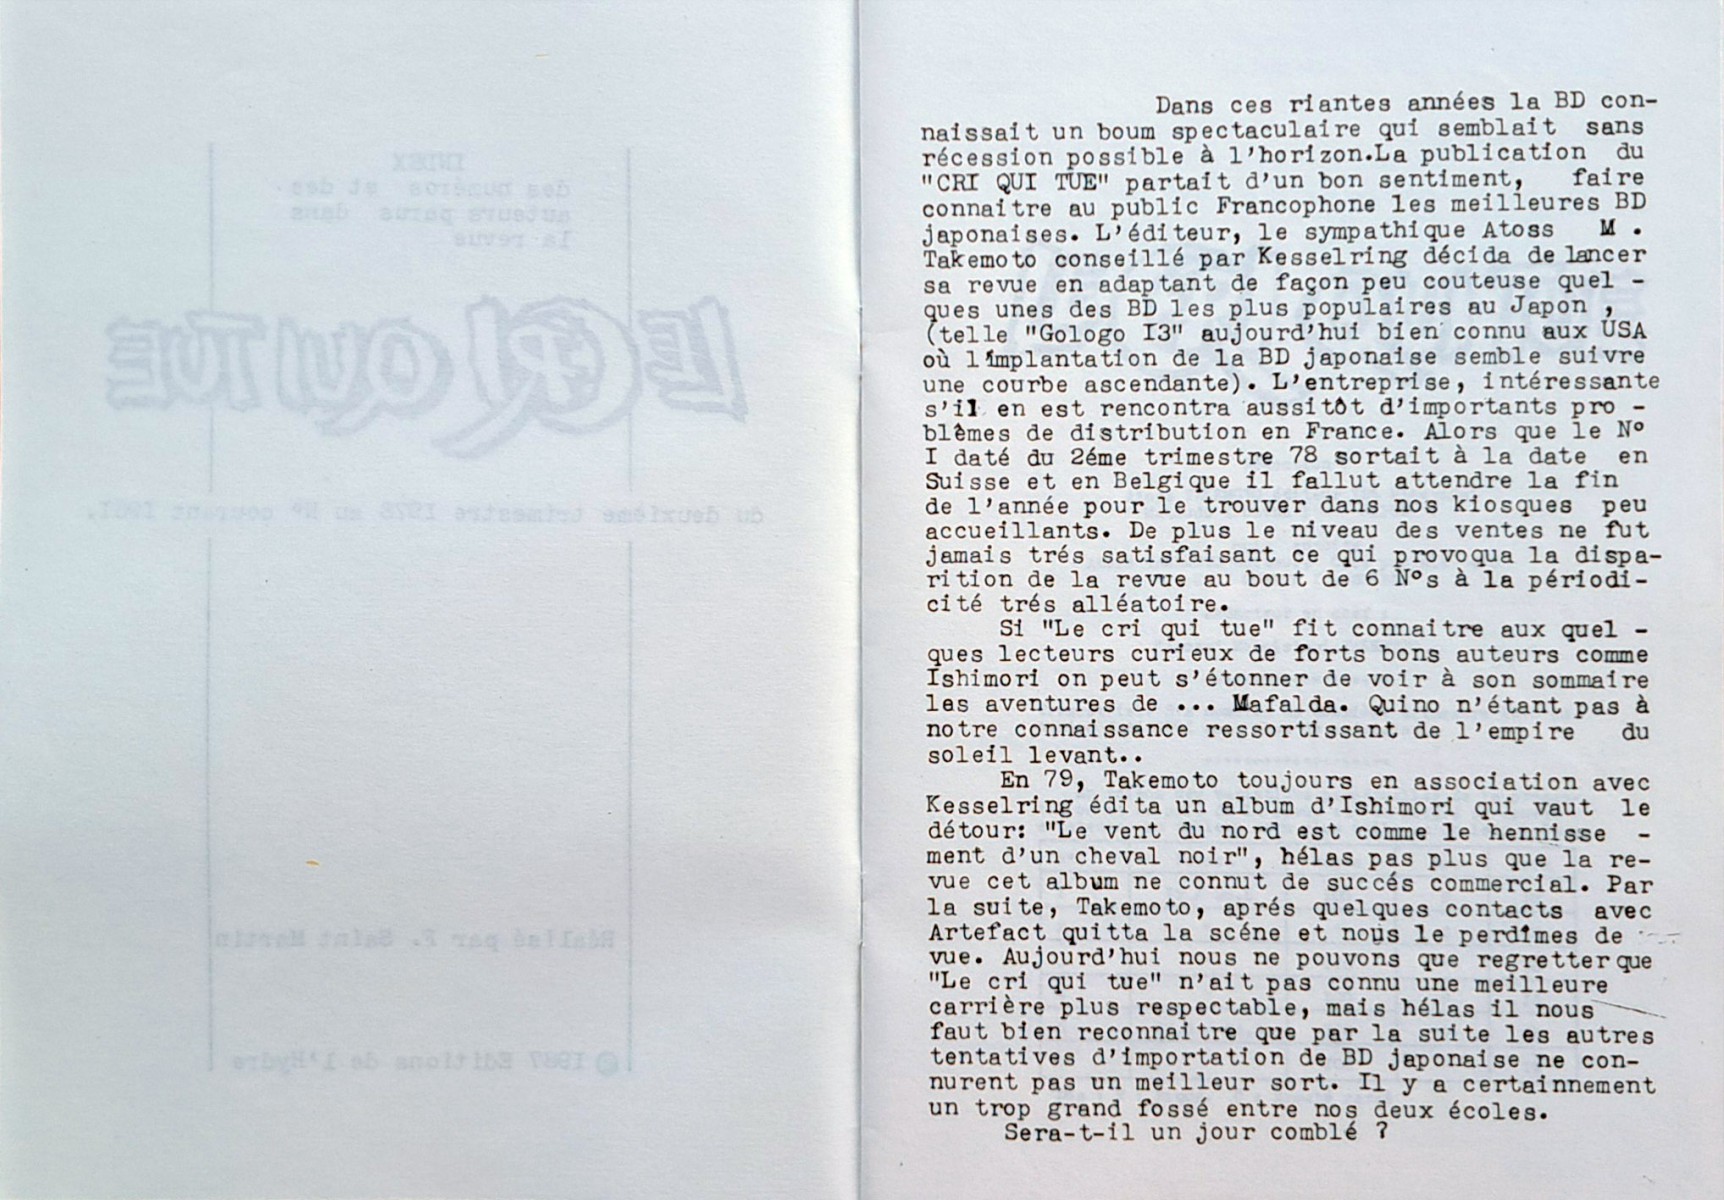 INDEX
des numéros et des
auteurs parus dans
la revue
LE CRI QUI TUE
du deuxième trimestre 1978 au N° courant 1981.
Réalisé par F. Saint Martin
© 1987 Editions de l'Hydre
Dans ces riantes années la BD con-
naissait un boum spectaculaire qui semblait sans
récession possible à l'horizon.La publication du
"CRI QUI TUE" partait d'un bon sentiment, faire
connaitre au public Francophone les meilleures BD
japonaises. L'éditeur, le sympathique Atoss M .
Takemoto conseillé par Kesselring décida de lancer
sa revue en adaptant de façon peu couteuse quel -
ques unes des BD les plus populaires au Japon ,
(telle "Gologo I3" aujourd'hui bien connu aux USA
où l'implantation de la BD japonaise semble suivre
une courbe ascendante). L'entreprise, intéressante
s'il en est rencontra aussitôt d'importants pro -
blêmes de distribution en France. Alors que le N°
I daté du 2éme trimestre 78 sortait à la date en
Suisse et en Belgique il fallut attendre la fin
de l'année pour le trouver dans nos kiosques peu
accueillants. De plus le niveau des ventes ne fut
jamais trés satisfaisant ce qui provoqua la dispa-
rition de la revue au bout de 6 N°s à la périodi-
cité trés alléatoire.
Si "Le cri qui tue" fit connaitre aux quel -
ques lecteurs curieux de forts bons auteurs comme
Ishimori on peut s'étonner de voir à son sommaire
les aventures de ... Mafalda. Quino n'étant pas à
notre connaissance ressortissant de l'empire du
soleil levant..
En 79, Takemoto toujours en association avec
Kesselring édita un album d'Ishimori qui vaut le
détour: "Le vent du nord est comme le hennisse -
ment d'un cheval noir", hélas pas plus que la re-
vue cet album ne connut de succés commercial. Par
la suite, Takemoto, aprés quelques contacts avec
Artefact quitta la scéne et nous le perdîmes de
vue. Aujourd'hui nous ne pouvons que regretter que
"Le cri qui tue" n'ait pas connu une meilleure
carrière plus respectable, mais hélas il nous
faut bien reconnaitre que par la suite les autres
tentatives d'importation de BD japonaise ne con-
nurent pas un meilleur sort. Il y a certainnement
un trop grand fossé entre nos deux écoles.
Sera-t-il un jour comblé ?